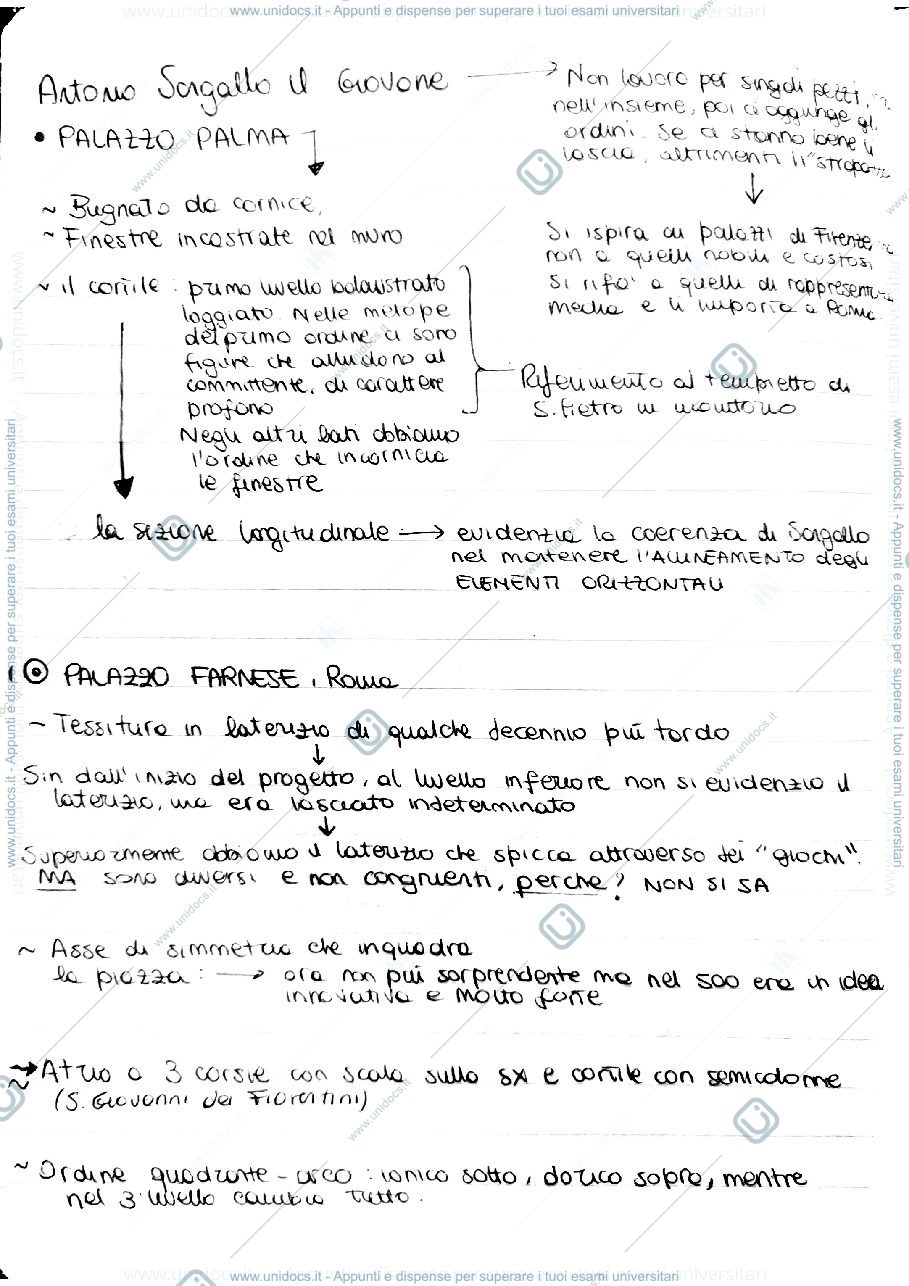 www.unidocs.it - Appunti e dispense per superare i tuoi esami universitari
Antonio Sangallo il Giovane
Non lavora per singoli pezzi,
nell'insieme, poi ci aggiunge gli
ordini. Se ci stanno bene li
lascia, altrimenti li "strappa
• PALAZZO PALMA
~ Bugnato da cornice,
~ Finestre incastrate nel muro
Si ispira ai palazzi di Firenze,
non a quelli nobili e costosi
si rifà a quelli di
media e li importa a Roma
~ il cortile: primo livello balaustrato
loggiato. Nelle metope
del primo ordine ci sono
figure che alludono al
committente, di carattere
profano
Negli altri lati abbiamo
l'ordine che incornicia
le finestre
Riferimento al tempietto di
S. Pietro in montorio
la sezione longitudinale → evidenzia la coerenza di Sangallo
nel mantenere l'ALLINEAMENTO degli
ELEMENTI ORIZZONTALI
PALAZZO FARNESE, Roma
~ Tessitura in laterizio di qualche decennio più tardo
Sin dall'inizio del progetto, al livello inferiore non si evidenzia il
laterizio, ma era lasciato indeterminato
Superiormente abbiamo il laterizio che spicca attraverso dei "giochi".
MA sono diversi e non congruenti, perchè? NON SI SA
~ Asse di simmetria che inquadra
la piazza: → ora non più sorprendente ma nel 500 era un idea
innovativa e molto forte
→ Atrio a 3 corsie con scala sulla sx e cortile con semicolonne
(S. Giovanni dei Fiorentini)
~ Ordine quadrante-arco: ionico sotto, dorico sopra, mentre
nel 3° livello cambia tutto.
www.unidocs.it - Appunti e dispense per superare i tuoi esami universitari